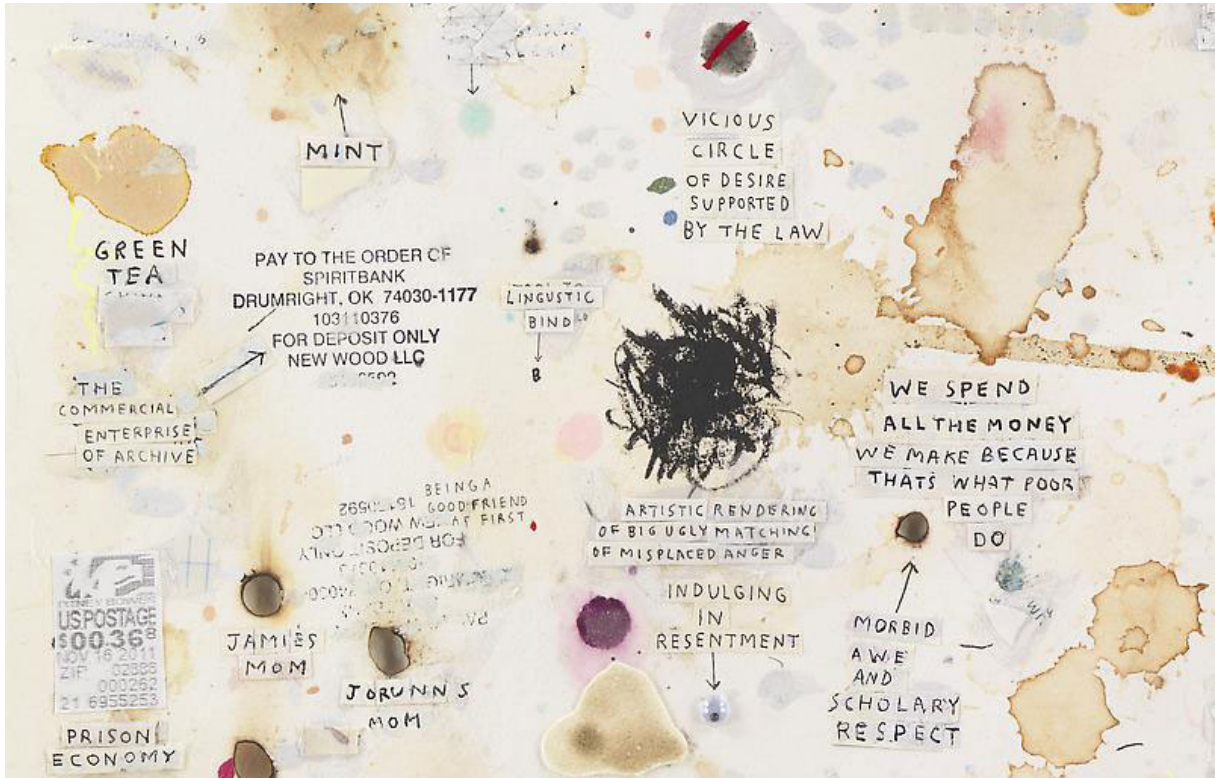 MINT
VICIOUS
CIRCLE
OF DESIRE
SUPPORTED
BY THE LAW
GREEN
TEA
PAY TO THE ORDER OF
SPIRITBANK
DRUMRIGHT, OK 74030-1177
103110376
FOR DEPOSIT ONLY
NEW WOOD LLC
LINGUSTIC
BIND
B
THE
COMMERCIAL
ENTERPRISE
OF ARCHIVE
WE SPEND
ALL THE MONEY
WE MAKE BECAUSE
THATS WHAT POOR
PEOPLE
DO
BEING A
GOOD FRIEND
AS FIRST
FOR DEPOSIT ONLY
ARTISTIC RENDERING
OF BIG UGLY MATCHING
OF MISPLACED ANGER
INDULGING
IN
RESENTMENT
PITNEY BOWES
US POSTAGE
$00.36⁸
NOV 16 2011
ZIP
000262
21 6955253
PRISON
ECONOMY
JAMIES
MOM
JORUNNS
MOM
MORBID
AWE
AND
SCHOLARY
RESPECT